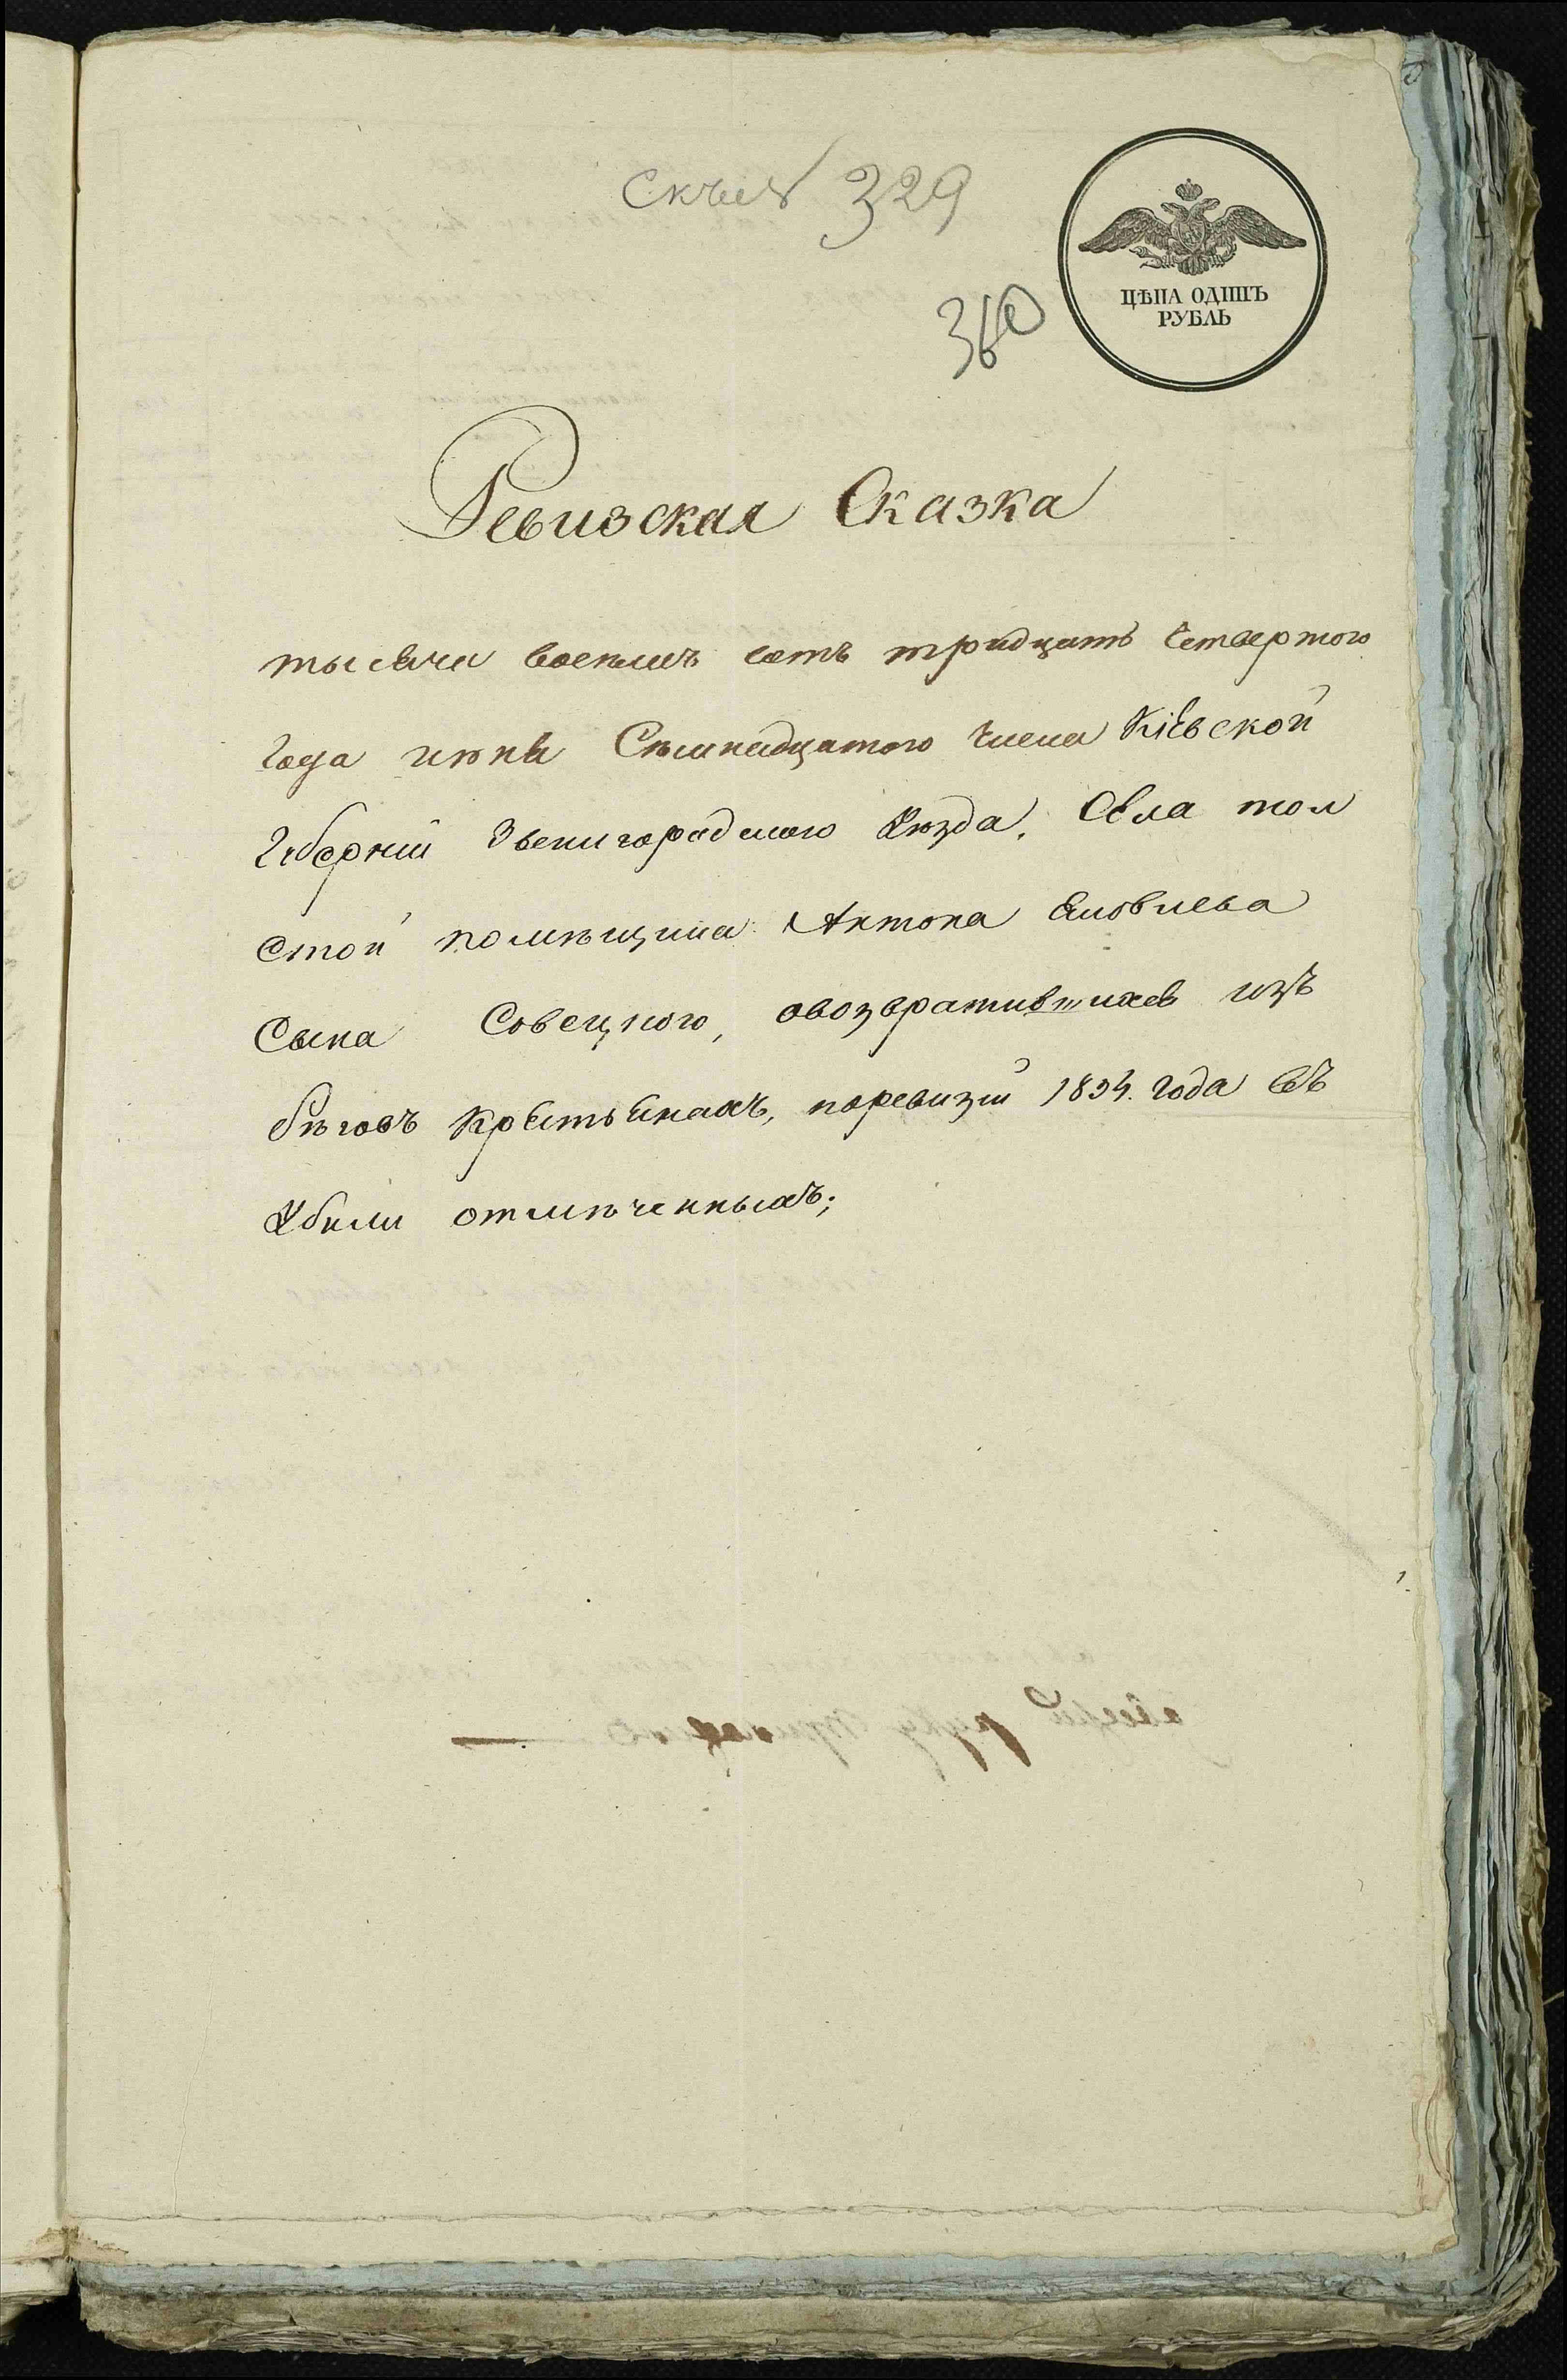 329
360
ЦѢНА ОДИНЪ
РУБЛЬ
Ревизская Сказка
тысяча восемь сотъ тридцать Четвертого
Года июня Семнадцатого числа Кіевской
Губерніи Звенигородского Уезда, Села тол
стой помѣщика Антона Яковлева
Сына Совецкого, овозвратившихся изъ
бѣговъ Крестьянахъ, поревизіи 1834. года въ
Убили отмѣченныхъ;